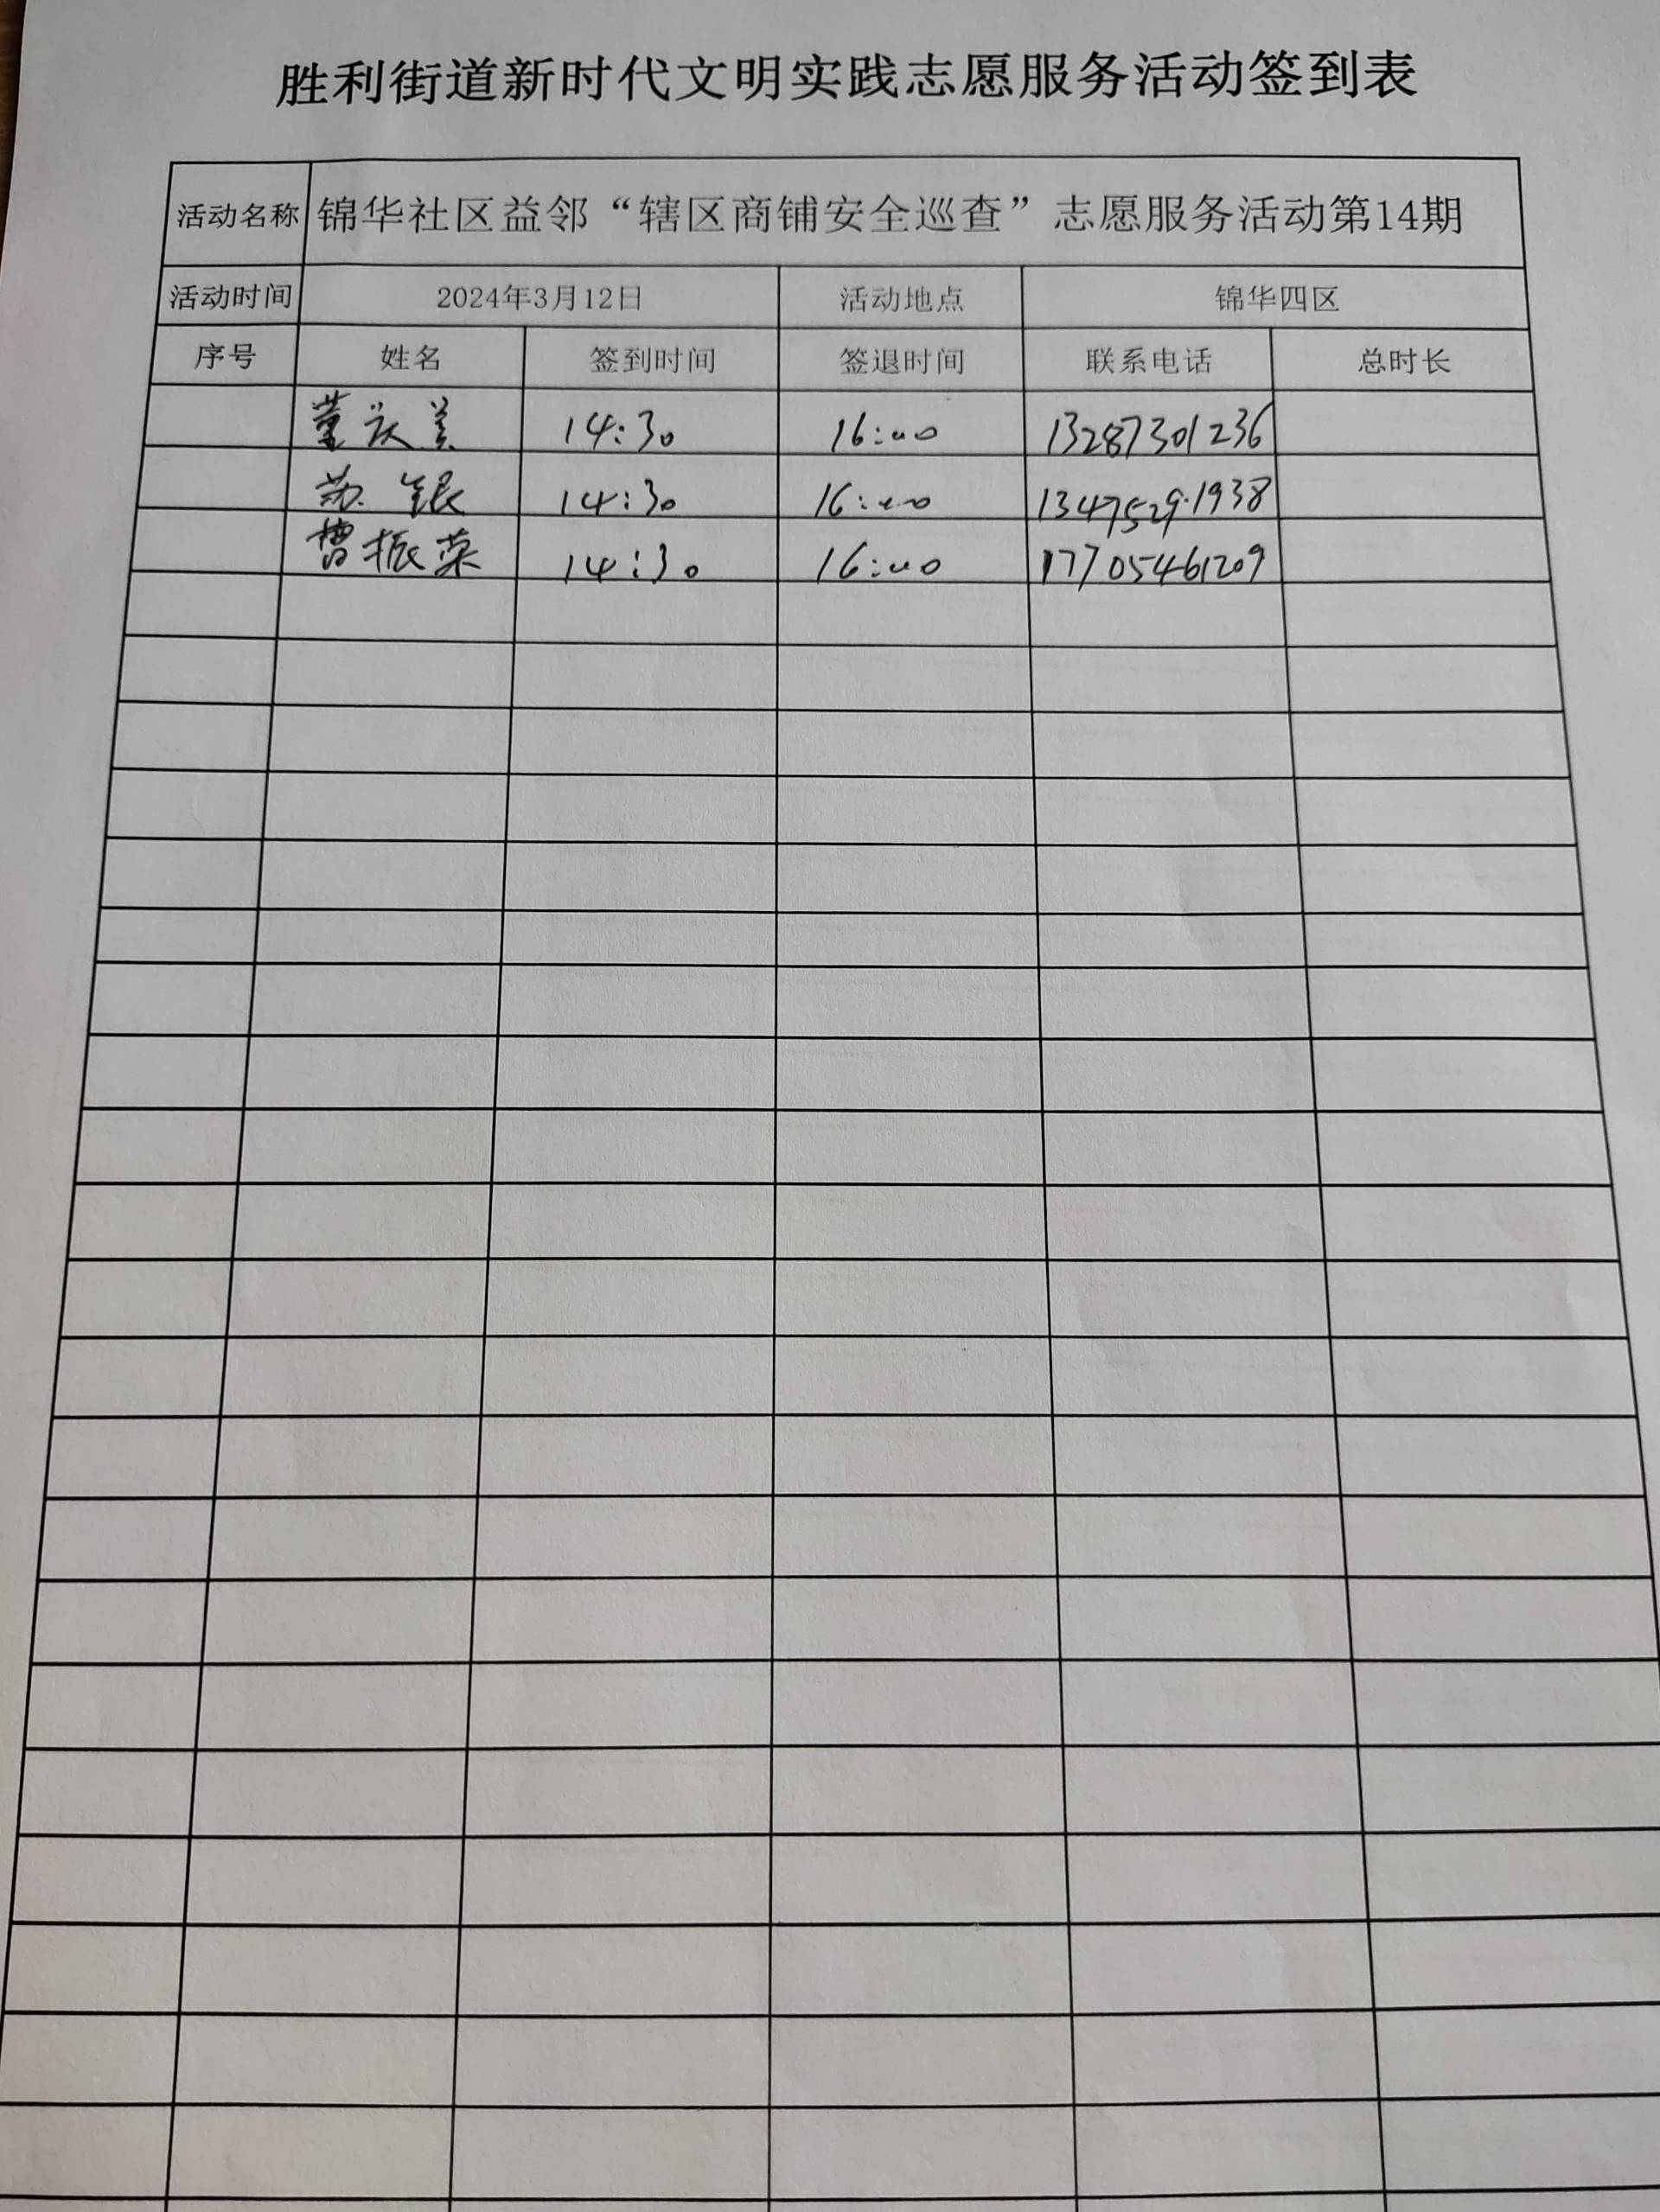 胜利街道新时代文明实践志愿服务活动签到表
活动名称 锦华社区益邻“辖区商铺安全巡查”志愿服务活动第14期
活动时间 2024年3月12日 活动地点 锦华四区
序号 姓名 签到时间 签退时间 联系电话 总时长
董庆美 14:30 16:00 13287301236
苏银 14:30 16:00 13475291938
曹振荣 14:30 16:00 17705461209